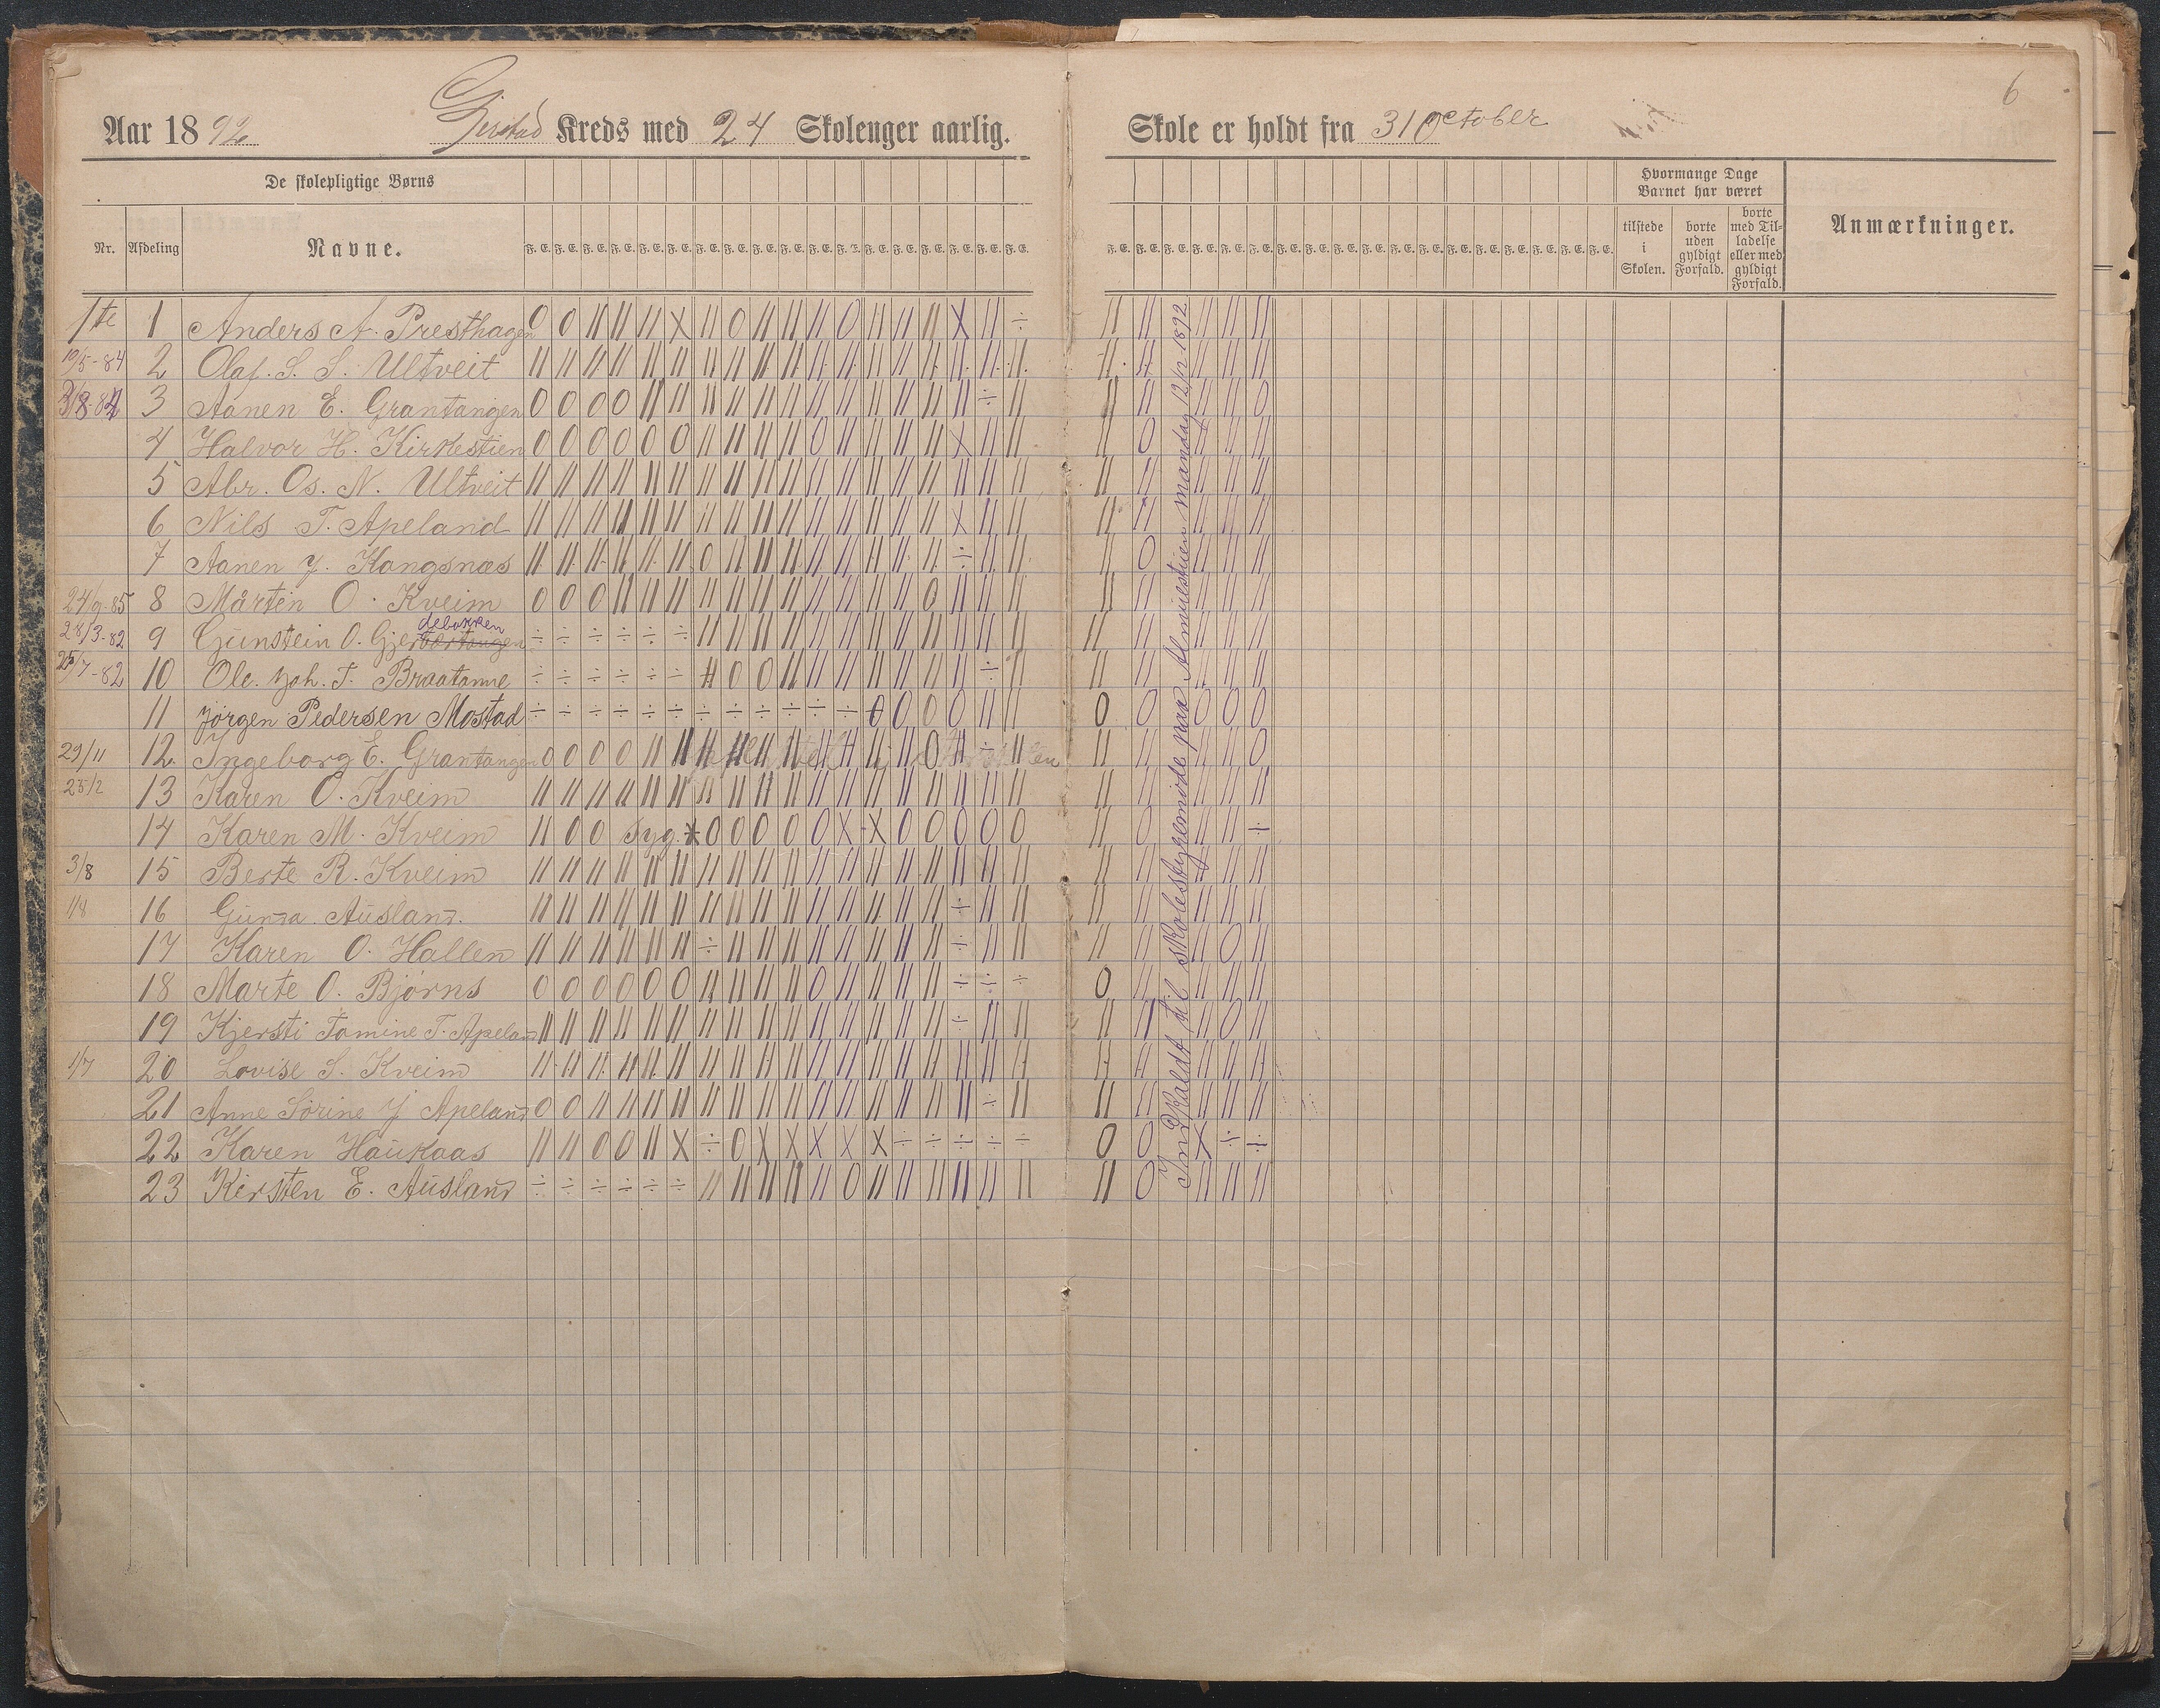 6
Aar 1892 Gjerstad Kreds med 24 Skoleuger aarlig. Skole er holdt fra 31 October
De skolepligtige Børns
Hvormange Dage Barnet har været
Nr. Afdeling Navne. F. E. F. E. F. E. F. E. F. E. F. E. F. E. F. E. F. E. F. E. F. E. F. E. F. E. F. E. F. E. F. E. F. E. F. E.
tilstede i Skolen. borte uden gyldigt Forfald. borte med Tilladelse eller med gyldigt Forfald. Anmærkninger.
1te 1 Anders A. Presthagen
19/5-84 2 Olaf. S. S. Ultveit
3/8-84 3 Aanen E. Grantangen
4 Halvor H. Kirkestien
5 Abr. Os. N. Ultveit
6 Nils T. Apeland
7 Aanen J. Kangsnæs
24/9-85 8 Mårten O. Kveim
debakken
28/3-82 9 Gunstein O. Gjerbertangen
25/7-82 10 Ole. Joh. T. Braatanne
11 Jörgen Pedersen Mostad
29/11 12. Ingeborg E. Grantangen
25/2 13 Karen O. Kveim
14 Karen M. Kveim Syg.
3/8 15 Berte R. Kveim
1/8 16 Gunna Ausland.
17 Karen O. Hallen
18 Marte O. Bjørns
19 Kjersti Tomine T. Apeland
1/7 20 Lovise S. Kveim
21 Anne Sörine J Apeland
22 Karen Haukaas
23 Kirsten E. Ausland
Indkaldt til skolestyremøde paa Almviestien mandag 12/12 1892